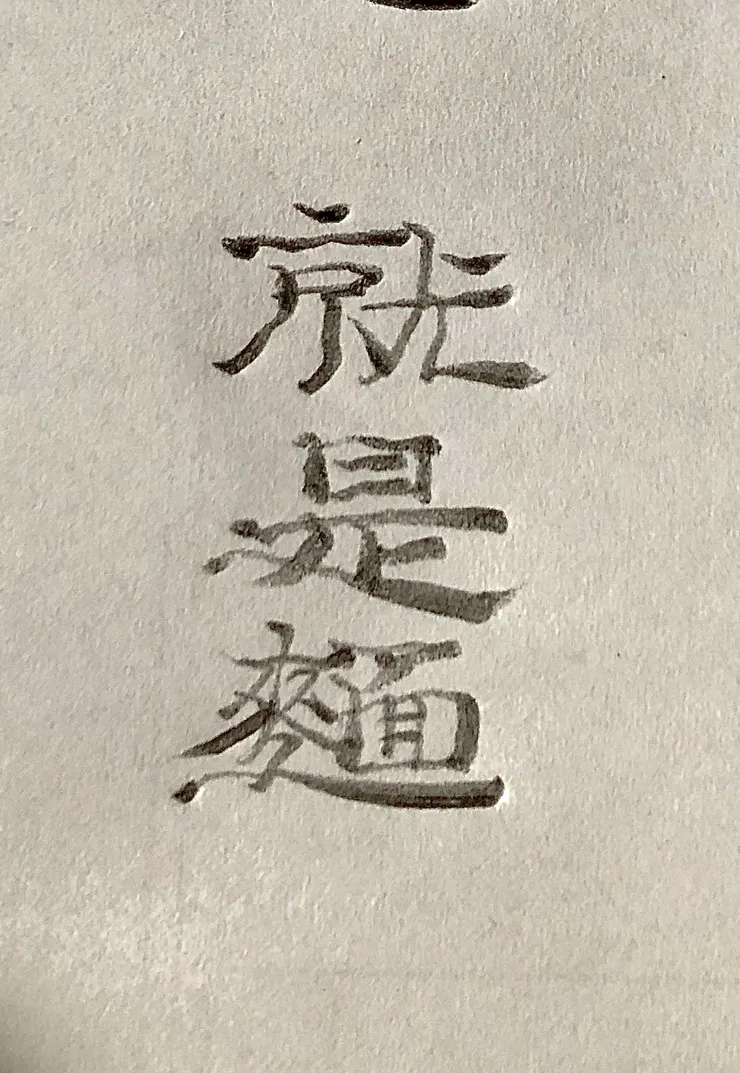 就是麵